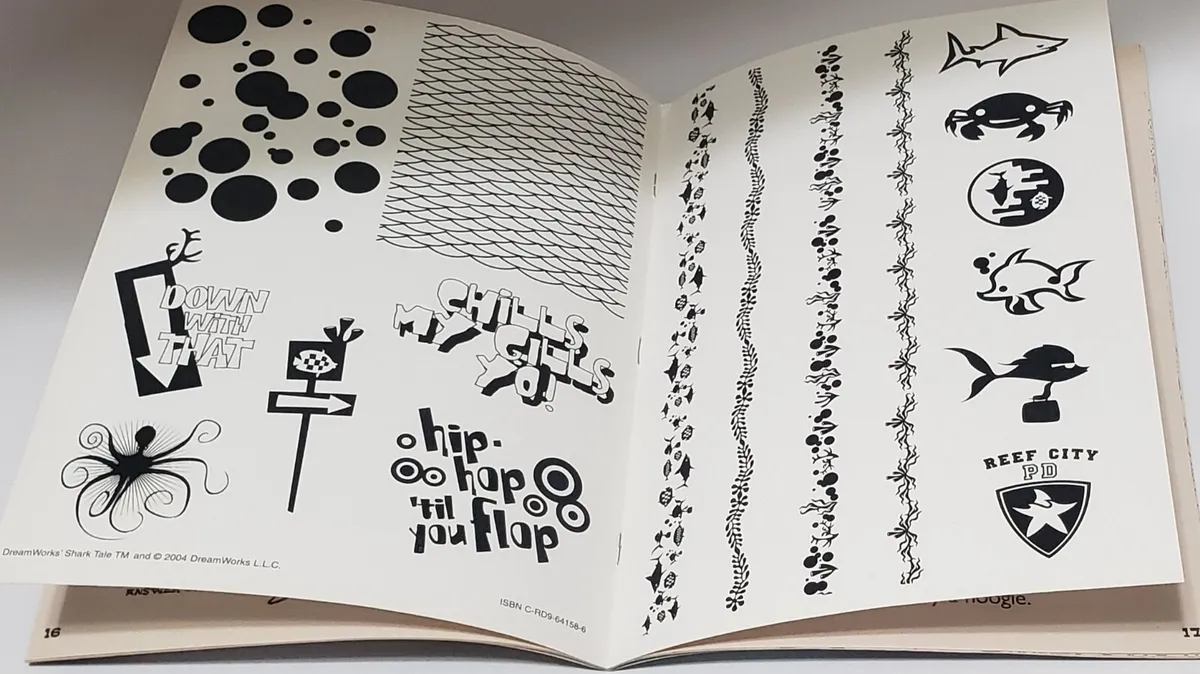 DOWN
WITH
THAT
CHILLS
MY GILLS
YO!
hip-
hop
'til
you flop
DreamWorks' Shark Tale TM and © 2004 DreamWorks L.L.C.
ISBN C-RD9-64158-6
REEF CITY
PD
16
17